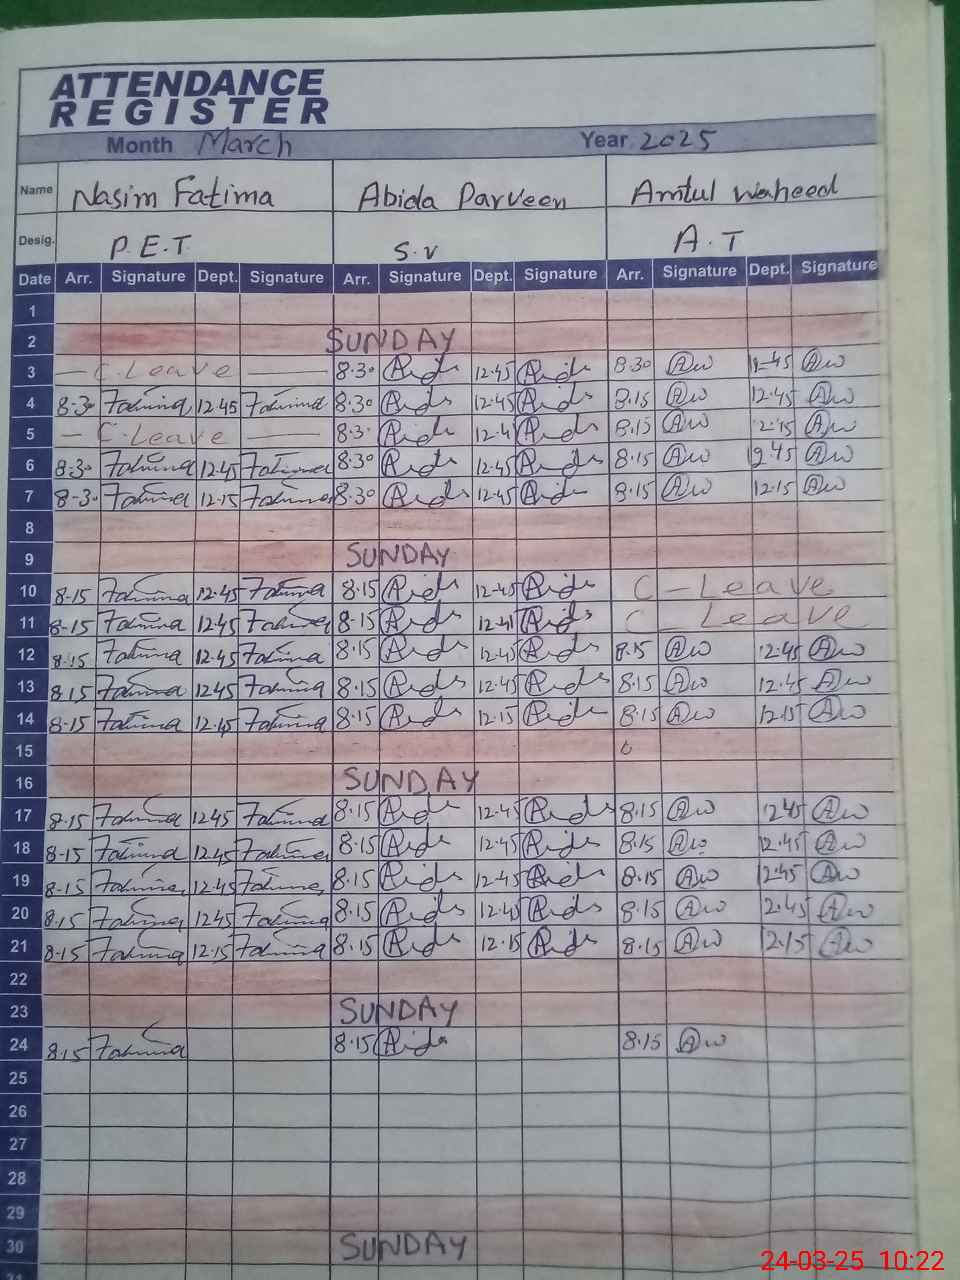 ATTENDANCE
REGISTER
Month March Year 2025
Name Nasim Fatima Abida Parveen Amtul Waheed
Desig. P.E.T S.V A.T
Date Arr. Signature Dept. Signature Arr. Signature Dept. Signature Arr. Signature Dept. Signature
1
2 SUNDAY
3 — C.Leave — 8.30 12.45 8.30 Aw 12.45 Aw
4 8.30 Fatima 12.45 Fatima 8.30 12.45 8.15 Aw 12.45 Aw
5 — C.Leave — 8.30 12.45 8.15 Aw 12.45 Aw
6 8.30 Fatima 12.45 Fatima 8.30 12.45 8.15 Aw 12.45 Aw
7 8.30 Fatima 12.15 Fatima 8.30 12.45 8.15 Aw 12.15 Aw
8
9 SUNDAY
10 8.15 Fatima 12.45 Fatima 8.15 12.45 C-Leave
11 8.15 Fatima 12.45 Fatima 8.15 12.45 C-Leave
12 8.15 Fatima 12.45 Fatima 8.15 12.45 8.15 Aw 12.45 Aw
13 8.15 Fatima 12.45 Fatima 8.15 12.45 8.15 Aw 12.45 Aw
14 8.15 Fatima 12.15 Fatima 8.15 12.15 8.15 Aw 12.15 Aw
15
16 SUNDAY
17 8.15 Fatima 12.45 Fatima 8.15 12.45 8.15 Aw 12.45 Aw
18 8.15 Fatima 12.45 Fatima 8.15 12.45 8.15 Aw 12.45 Aw
19 8.15 Fatima 12.45 Fatima 8.15 12.45 8.15 Aw 12.45 Aw
20 8.15 Fatima 12.45 Fatima 8.15 12.45 8.15 Aw 2.45 Aw
21 8.15 Fatima 12.15 Fatima 8.15 12.15 8.15 Aw 12.15 Aw
22
23 SUNDAY
24 8.15 Fatima 8.15 8.15 Aw
25
26
27
28
29
30 SUNDAY
31
24-03-25 10:22